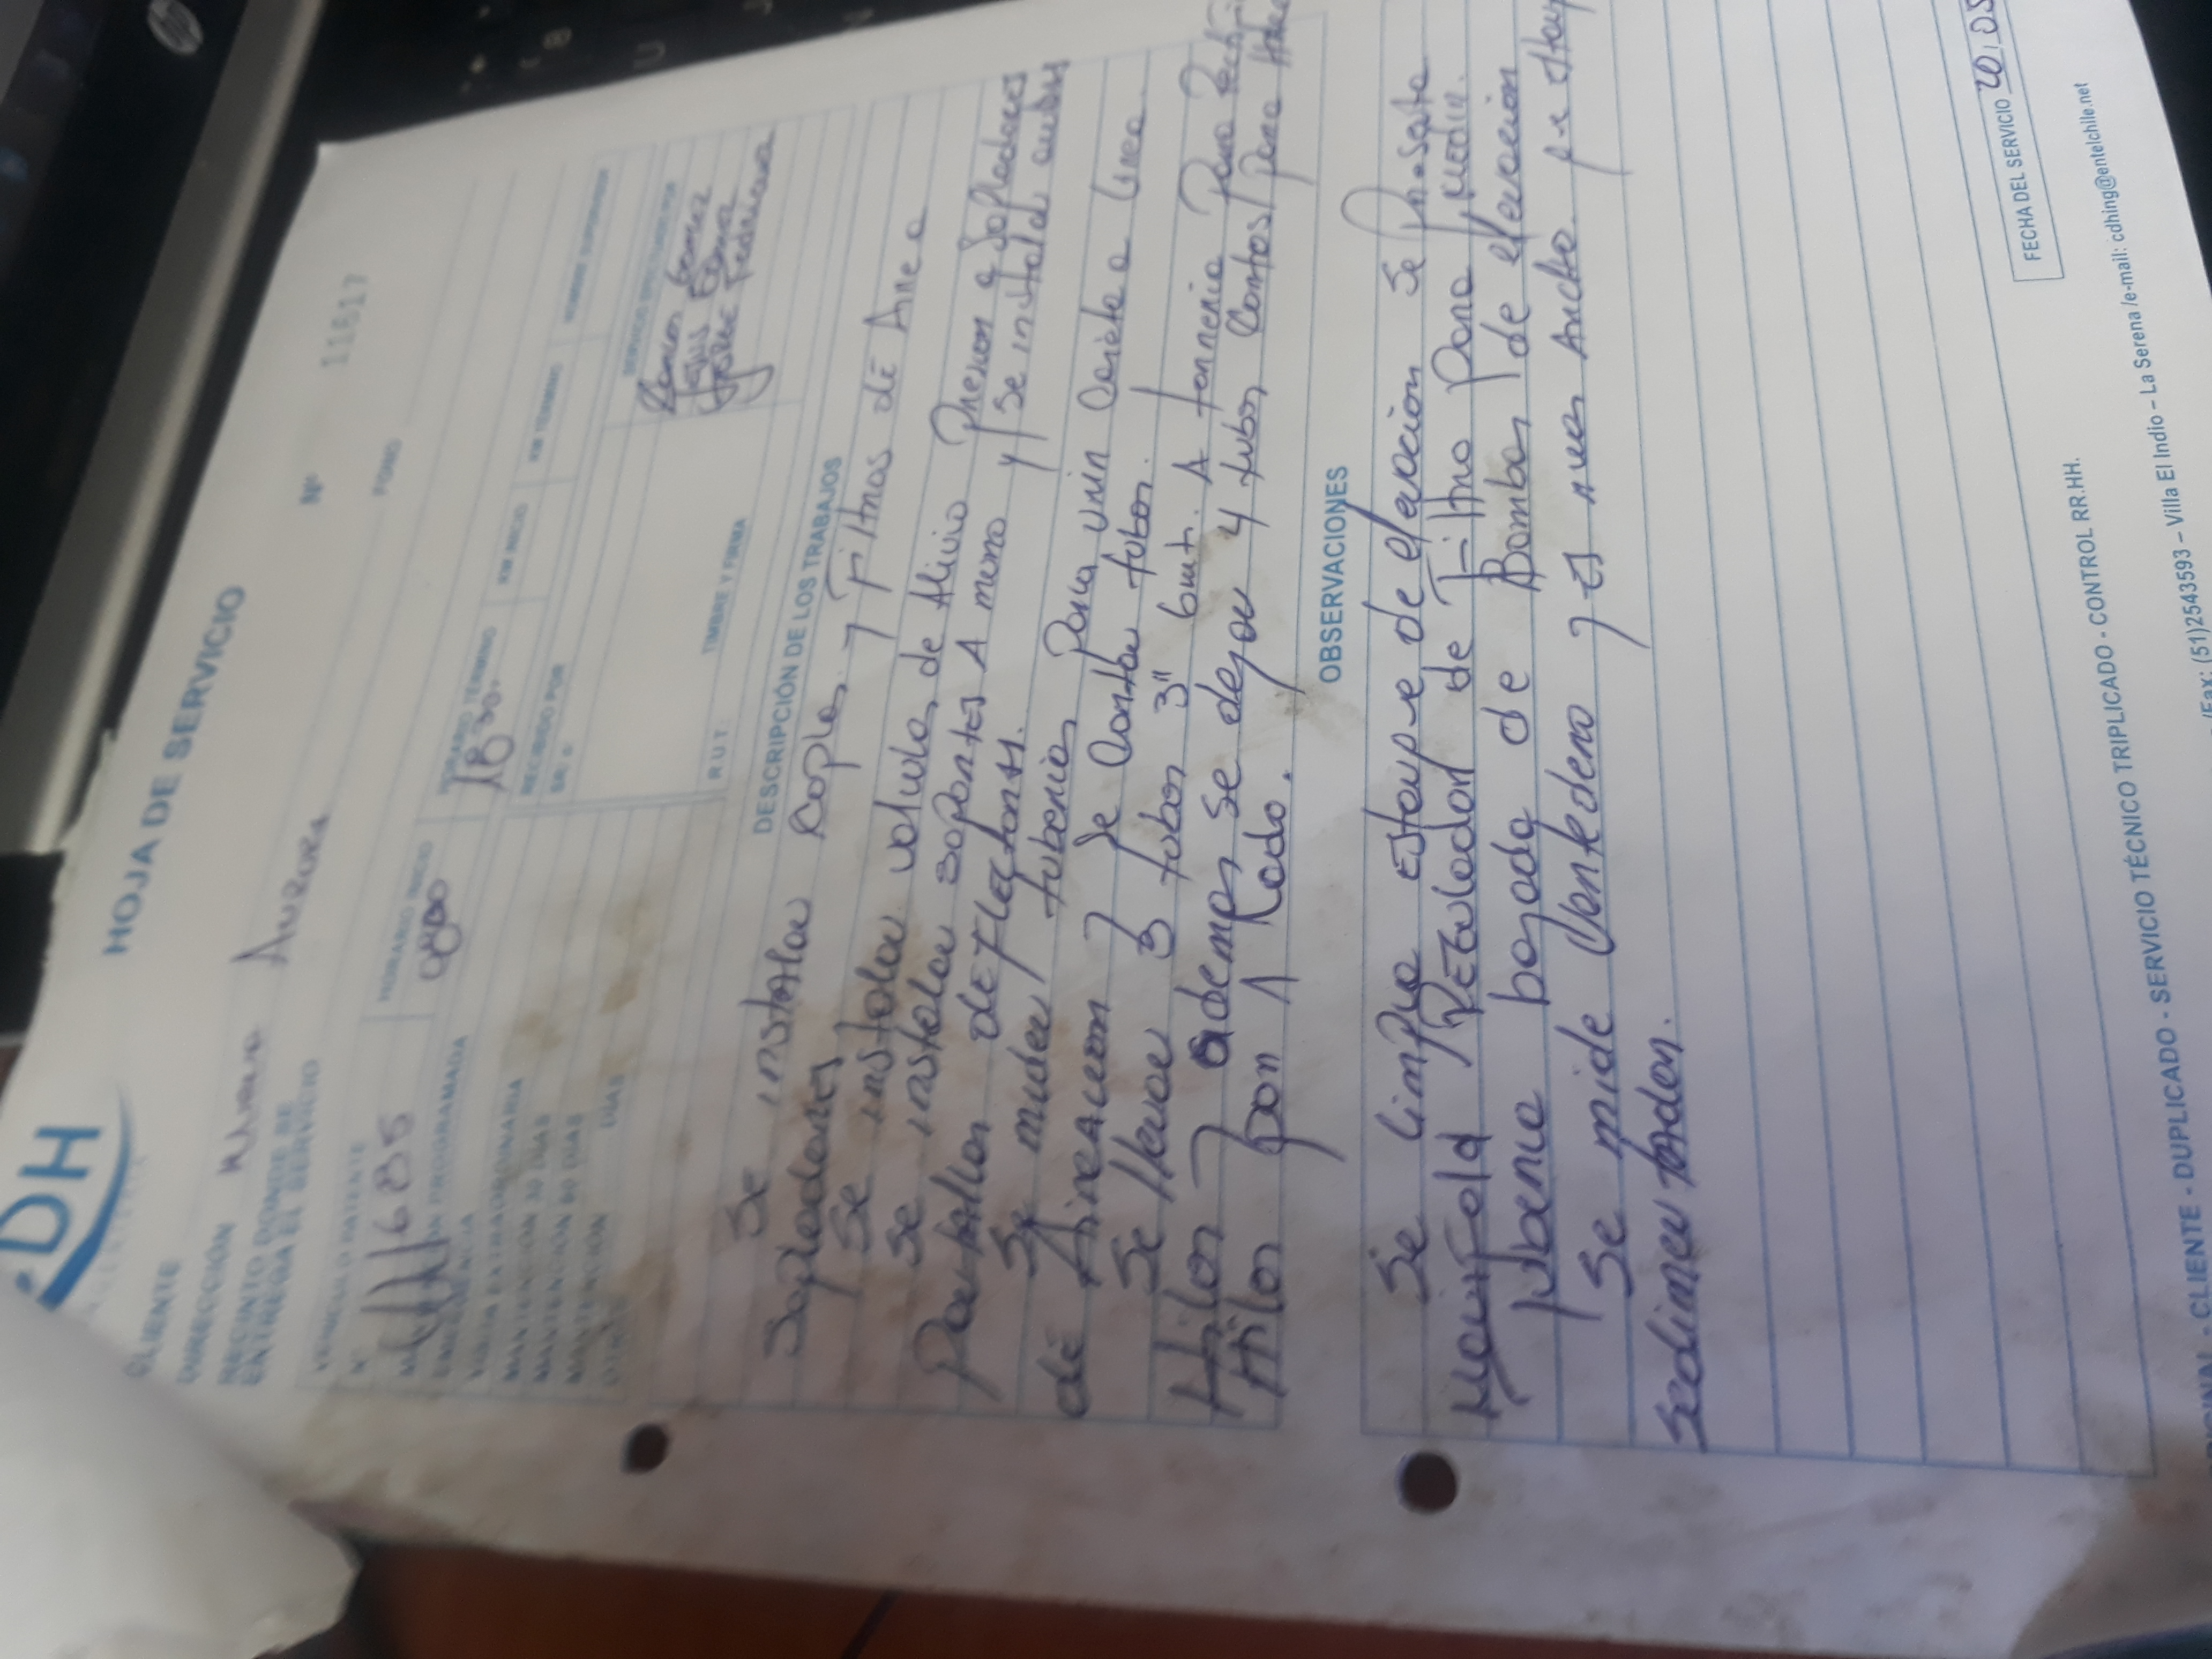 DH
HOJA DE SERVICIO
CLIENTE
DIRECCIÓN Aurora
Nº 11617
RECINTO DONDE SE
ENTREGA EL SERVICIO
FONO
VEHICULO PATENTE
Nº 685
HORARIO INICIO
0800
HORARIO TERMINO
18 30.
KM INICIO
KM TERMINO
NOMBRE SUPERVISOR
MANTENCIÓN PROGRAMADA
EMERGENCIA
VISITA EXTRAORDINARIA
MANTENCIÓN 30 DIAS
MANTENCIÓN 60 DIAS
MANTENCIÓN DÍAS
OTROS
RECIBIDO POR
SR.
R.U.T.
TIMBRE Y FIRMA
SERVICIO EFECTUADO POR
DESCRIPCIÓN DE LOS TRABAJOS
Se instalan Coplas y Filtros de Aire a
Sopladores,
Se instalan valvulas de Alivio Presion a Sopladores
Se instalan soportes A muro y se instalan
Pantallas deflectoras.
Se miden tuberias para unir Carrete a linea
de Aireacion y se Cortan tubos.
Se llevan 3 tubos 3" 6mt. A tornería Para
Hilos y ademas se dejan 4 tubos Cortos para
Hilos por 1 lado.
OBSERVACIONES
Se limpia Estanque de elevacion Se
Manifold Regulador de Filtro para medir.
tuberia bajada de Bombas de elevación
Se mide Vertedero y es mas Ancho que
sedimentador.
FECHA DEL SERVICIO 20, 05
- CLIENTE - DUPLICADO - SERVICIO TÉCNICO TRIPLICADO - CONTROL RR.HH.
/Fax: (51)2543593 – Villa El Indio – La Serena /e-mail: cdhing@entelchile.net